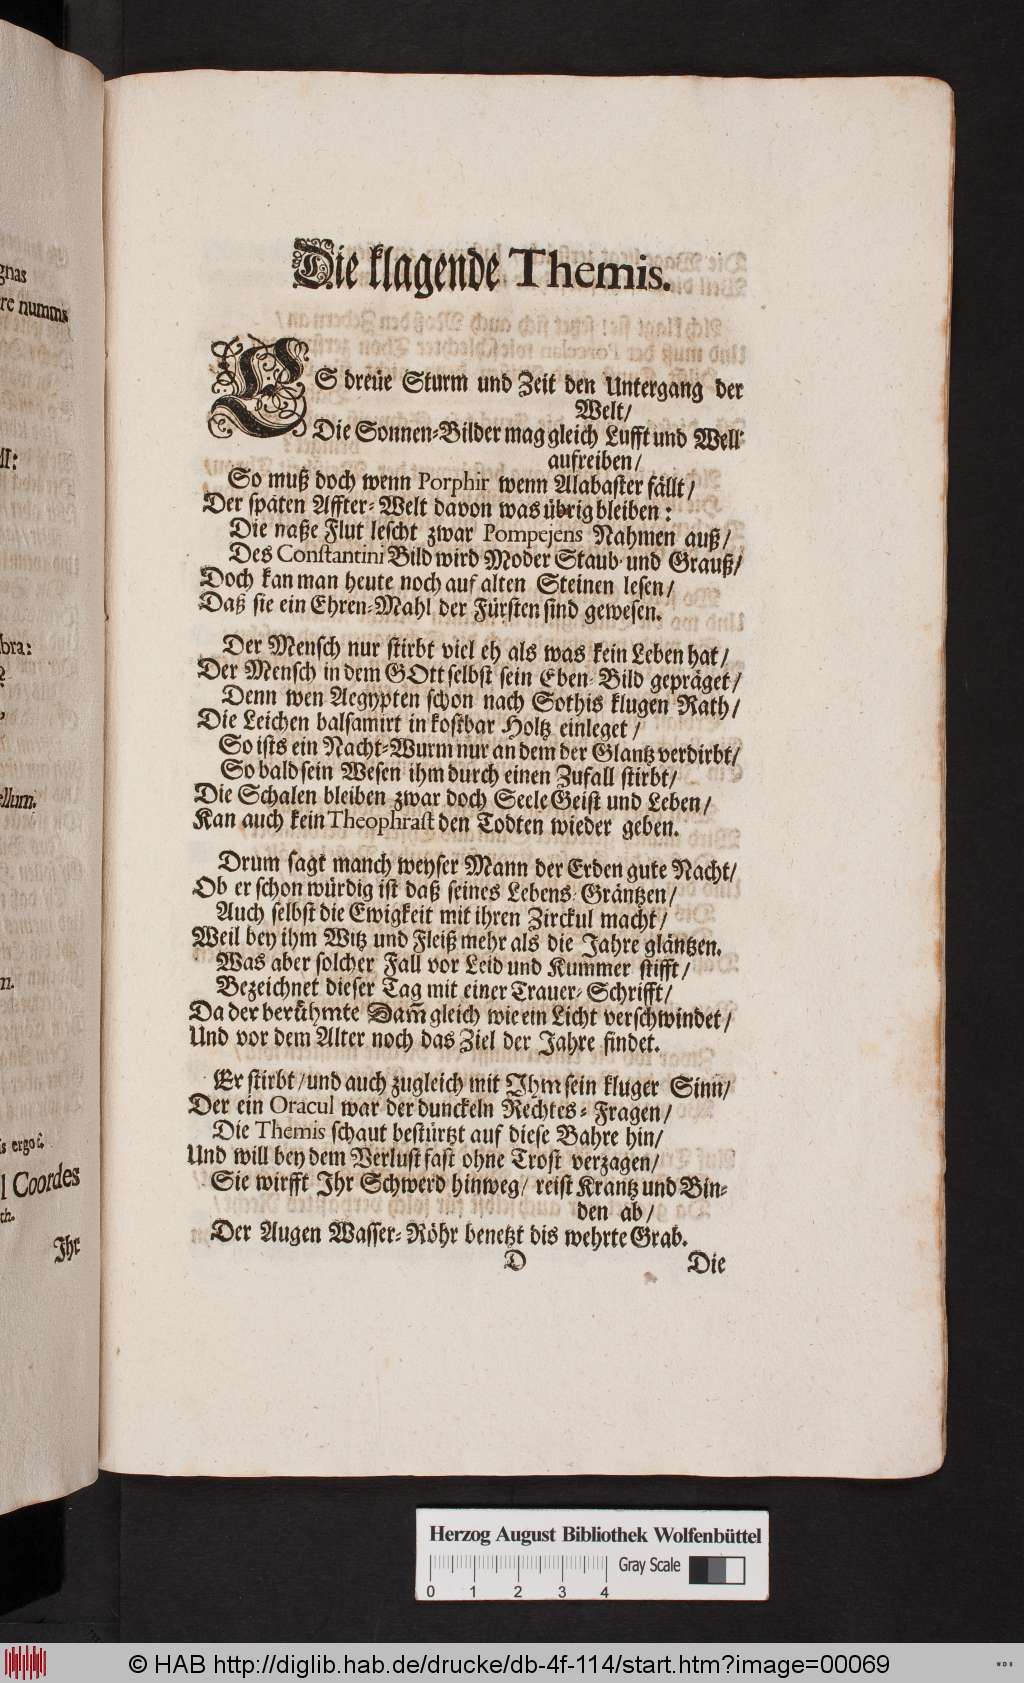 gnas
re numms
ll:
bra:
ellum.
n.
s ergo
l Coordes
th.
Ihr
Die klagende Themis.
ES dreüe Sturm und Zeit den Untergang der
Welt/
Die Sonnen-Bilder mag gleich Lufft und Well
aufreiben/
So muß doch wenn Porphir wenn Alabaster fällt/
Der späten Affter-Welt davon was übrig bleiben:
Die naße Flut lescht zwar Pompejens Nahmen auß/
Des Constantini Bild wird Moder Staub und Grauß/
Doch kan man heute noch auf alten Steinen lesen/
Daß sie ein Ehren-Mahl der Fürsten sind gewesen.
Der Mensch nur stirbt viel eh als was kein Leben hat/
Der Mensch in dem GOtt selbst sein Eben-Bild gepräget/
Denn wen Aegypten schon nach Sothis klugen Rath/
Die Leichen balsamirt in kostbar Holtz einleget/
So ists ein Nacht-Wurm nur an dem der Glantz verdirbt/
So bald sein Wesen ihm durch einen Zufall stirbt/
Die Schalen bleiben zwar doch Seele Geist und Leben/
Kan auch kein Theophrast den Todten wieder geben.
Drum sagt manch weyser Mann der Erden gute Nacht/
Ob er schon würdig ist daß seines Lebens-Gräntzen/
Auch selbst die Ewigkeit mit ihren Zirckul macht/
Weil bey ihm Witz und Fleiß mehr als die Jahre gläntzen.
Was aber solcher Fall vor Leid und Kummer stifft/
Bezeichnet dieser Tag mit einer Trauer-Schrifft/
Da der berühmte Dam̃ gleich wie ein Licht verschwindet/
Und vor dem Alter noch das Ziel der Jahre findet.
Er stirbt/und auch zugleich mit Ihm sein kluger Sinn/
Der ein Oracul war der dunckeln Rechtes-Fragen/
Die Themis schaut bestürtzt auf diese Bahre hin/
Und will bey dem Verlust fast ohne Trost verzagen/
Sie wirfft Ihr Schwerd hinweg/ reist Krantz und Bin-
den ab/
Der Augen Wasser-Röhr benetzt dis wehrte Grab.
D Die
Herzog August Bibliothek Wolfenbüttel
Gray Scale
0 1 2 3 4
© HAB http://diglib.hab.de/drucke/db-4f-114/start.htm?image=00069